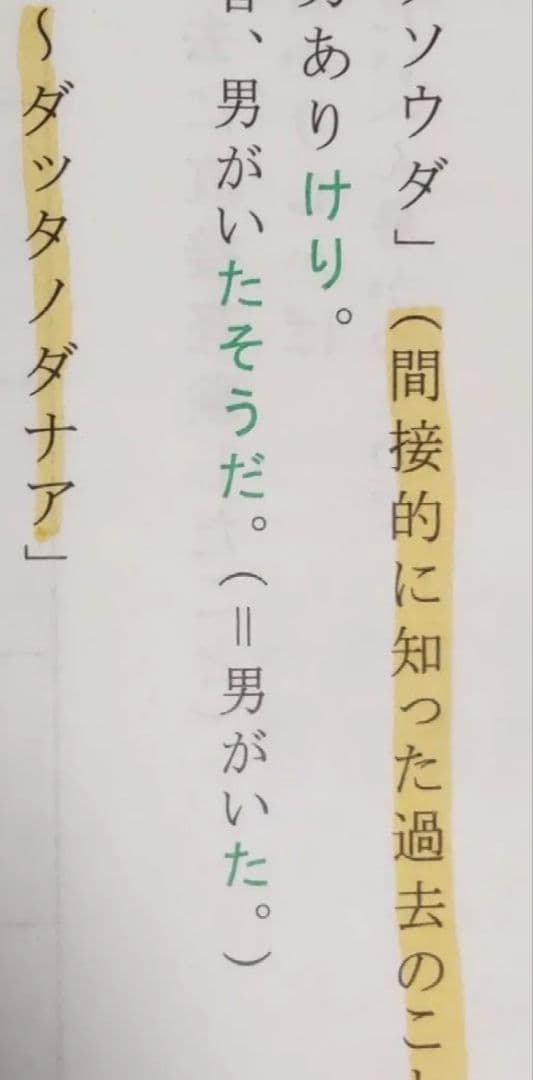 ソウダ」(間接的に知った過去のこ
ありけり。
、男がいたそうだ。(=男がいた。)
~ダッタノダナア」